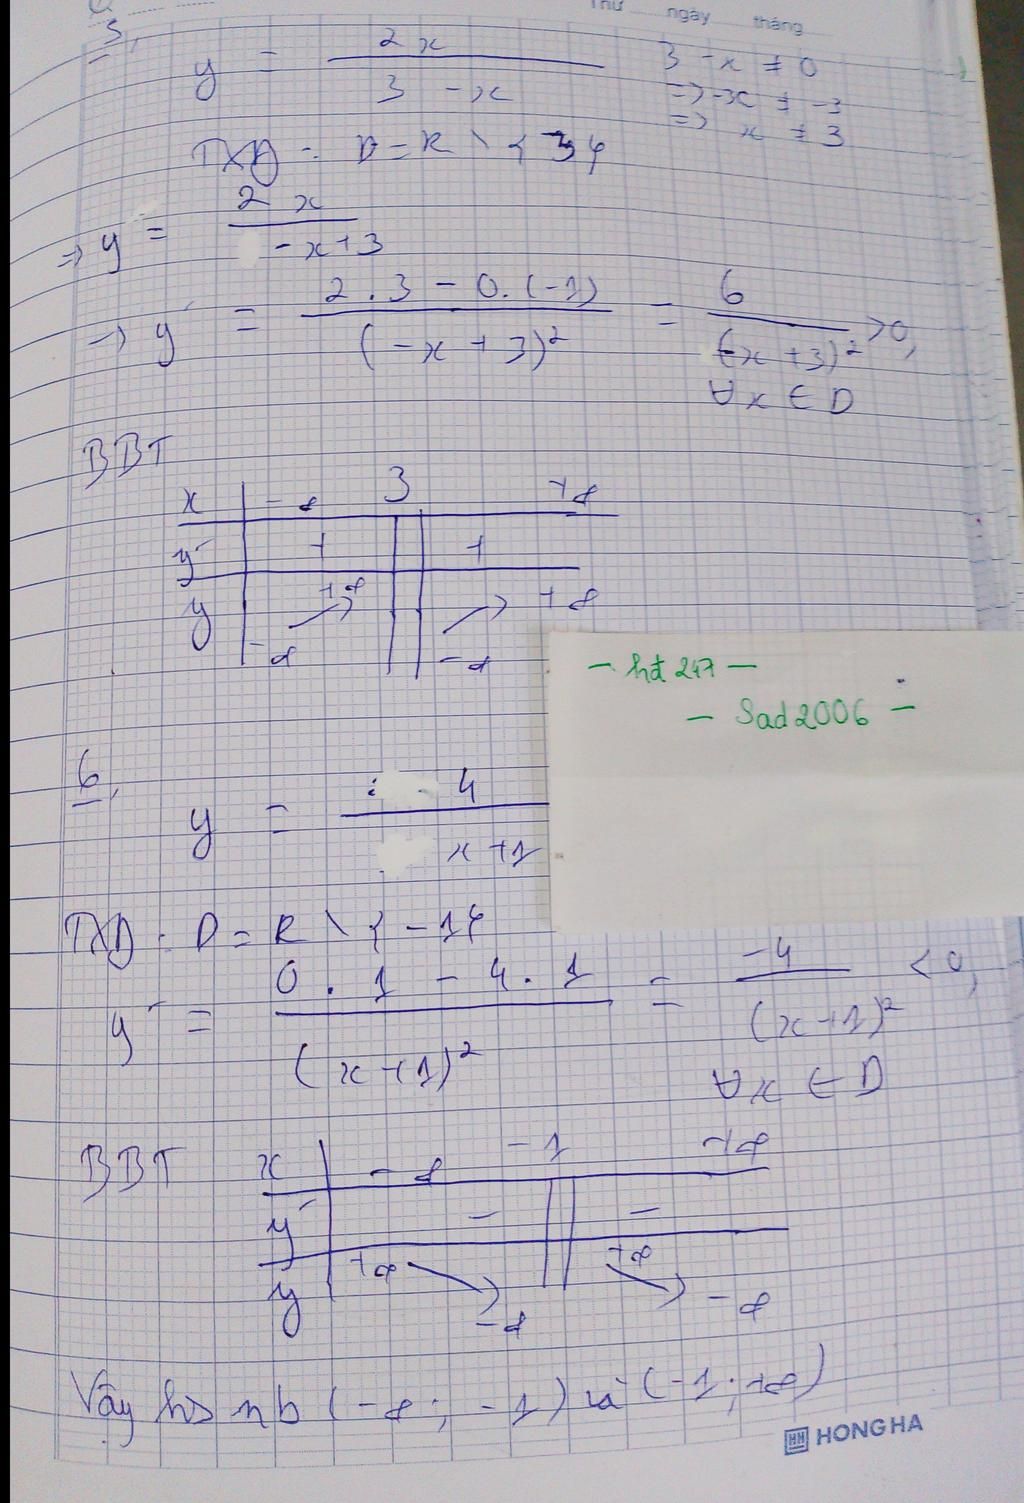 Thứ ngày tháng
5,
y = 2x / 3 - x
3 - x ≠ 0
=> -x ≠ -3
=> x ≠ 3
TXĐ : D = R \ {3}
=> y = 2x / -x+3
-> y' = 2.3 - 0.(-1) / (-x+3)² = 6 / (-x+3)² > 0,
∀x ∈ D
BBT
x -∞ 3 +∞
y' + +
y -∞ +∞ -∞ +∞
- hđ 247 -
- Sad2006 -
6,
y = 4 / x+1
TXĐ : D = R \ {-1}
y' = 0.1 - 4.1 / (x+1)² = -4 / (x+1)² < 0,
∀x ∈ D
BBT
x -∞ -1 +∞
y' - -
y +∞ -∞ +∞ -∞
Vậy hs nb (-∞; -1) và (-1; +∞)
HONG HA